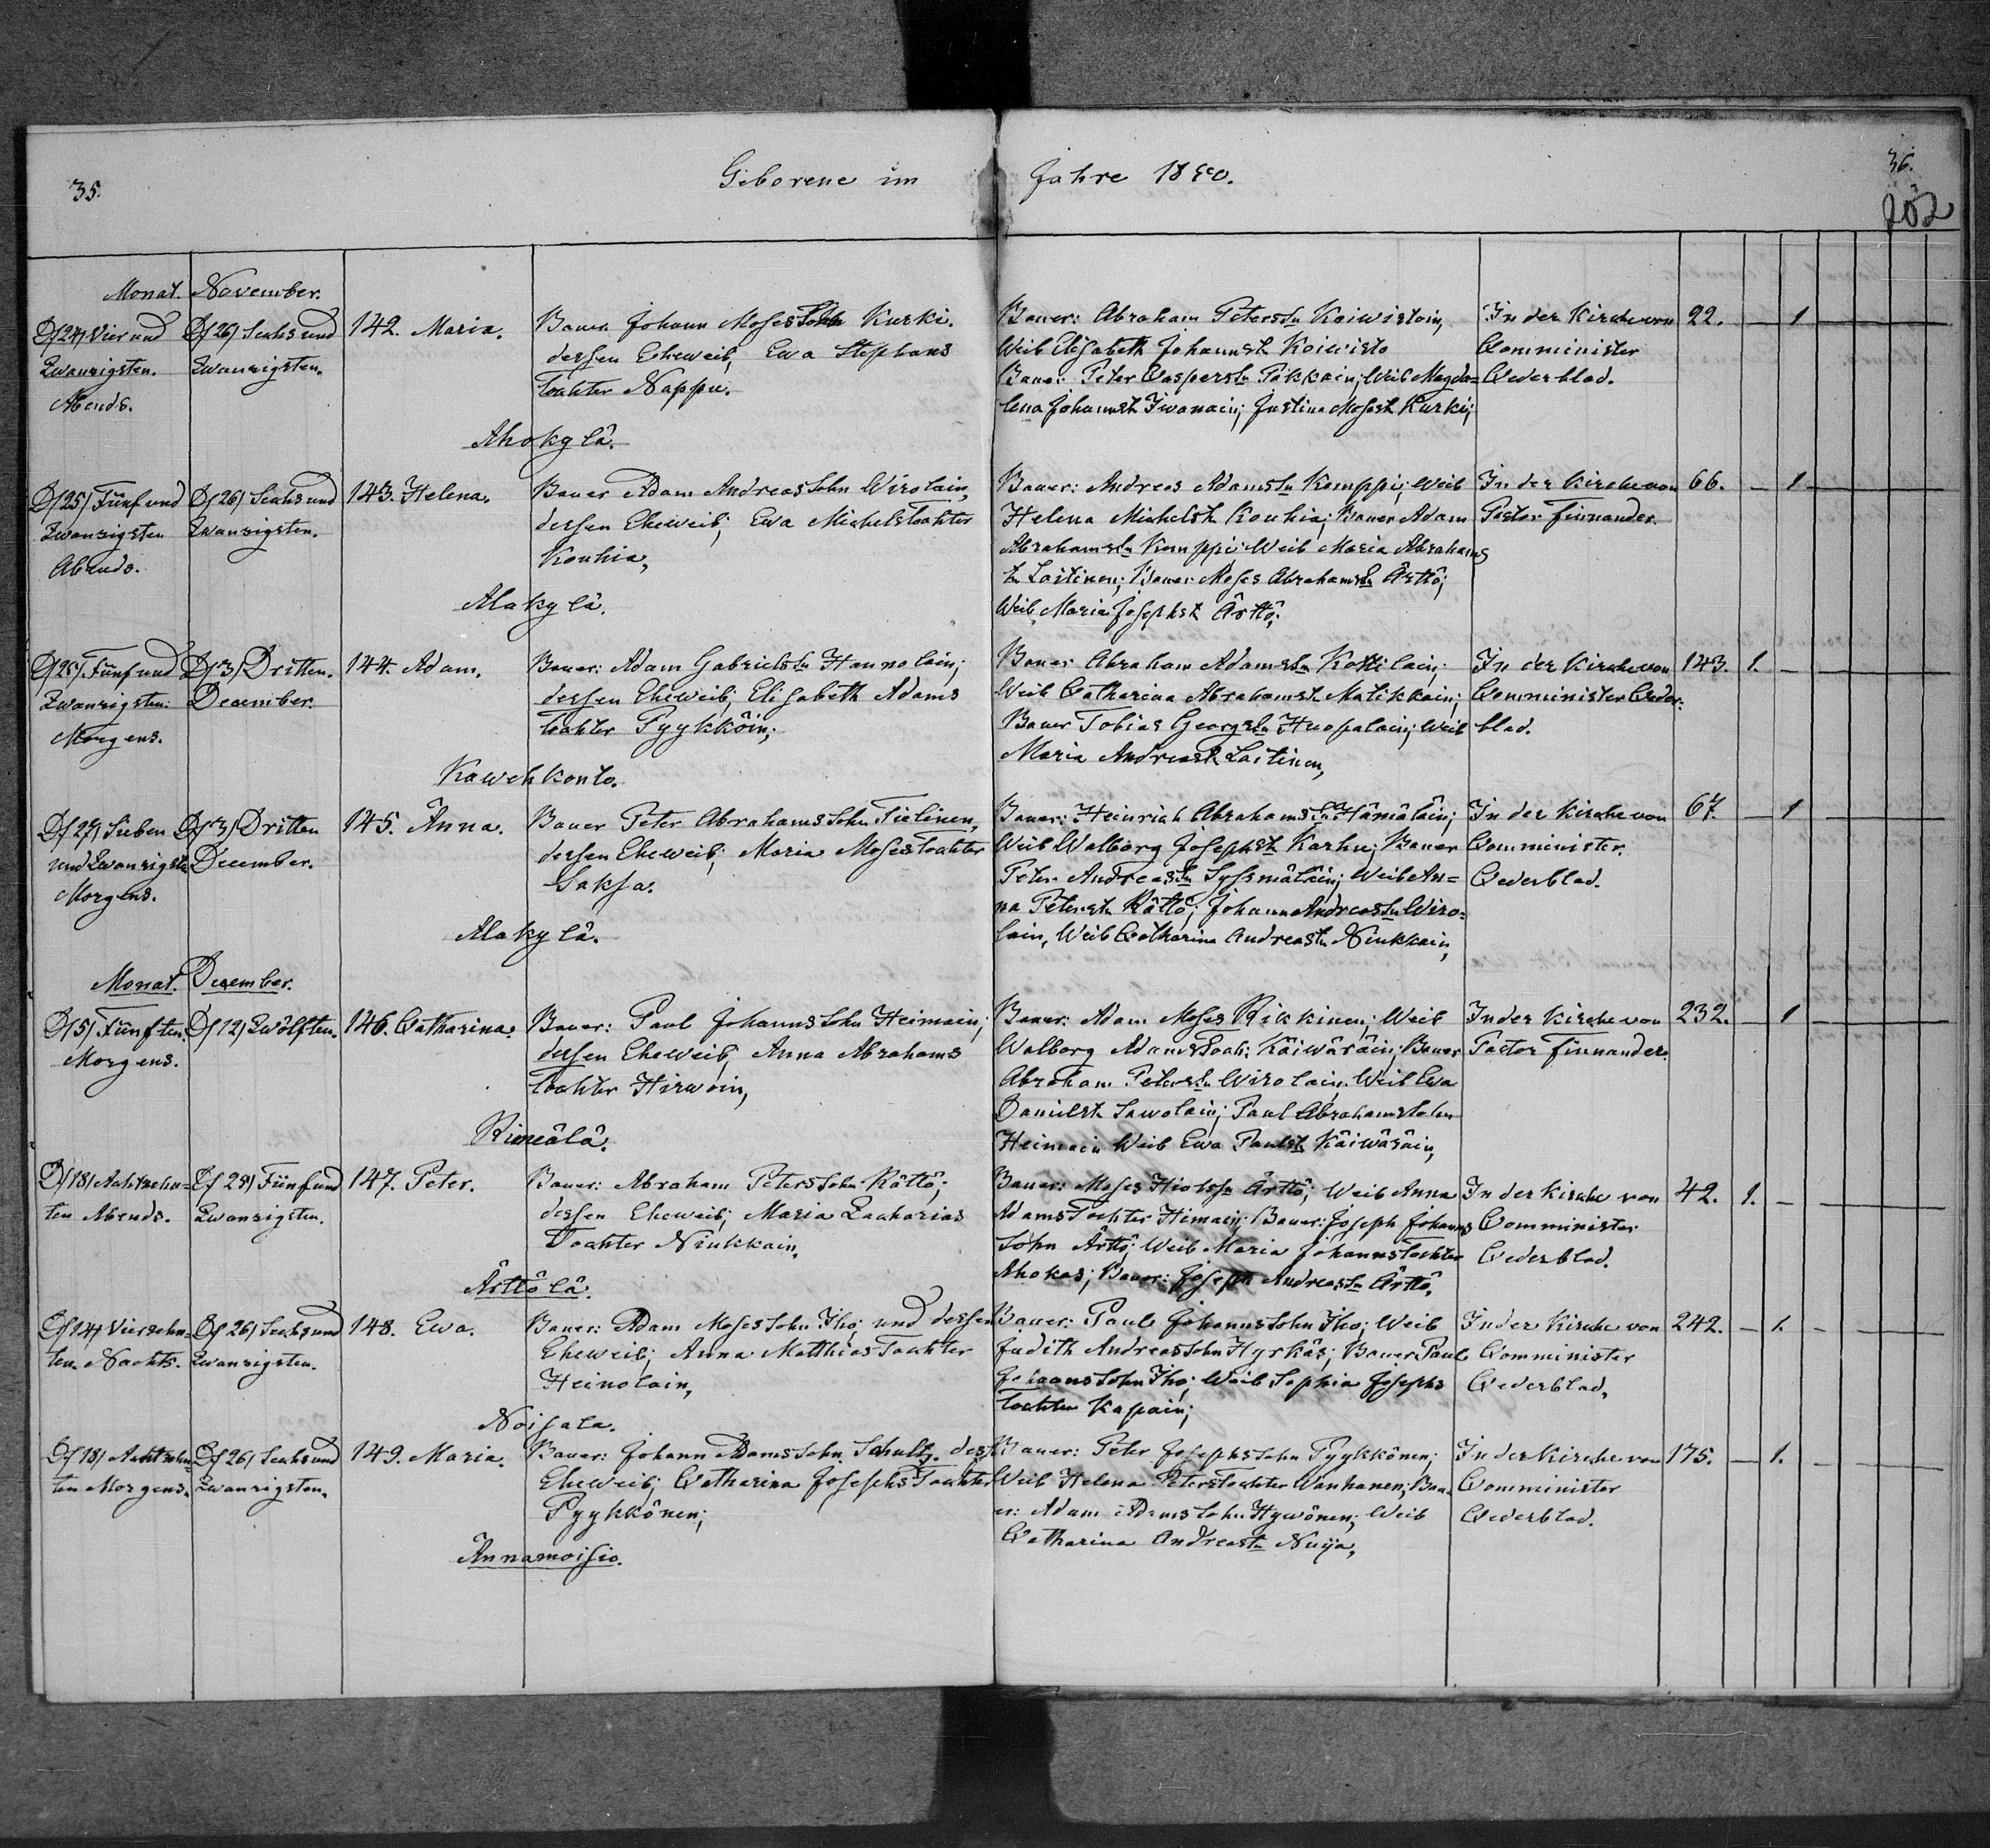 35.
Geborene im Jahre 18
36.
202
Monat. November.
D/24/ Vier und
Zwanzigsten.
Abends.
D/26/ Sechs und
Zwanzigsten.
142. Maria.
Bauer Johann Moses Sohn Kurki.
dessen Eheweib; Ewa Stephans
Tochter Nappu.
Ahokylä.
Bauer: Abraham Peterssn Koiwistoin,
Weib Elisabeth Johannst. Koiwisto
Bauer: Peter Casperssn Pökkain; Weib Magda=
lena Johannst. Iwanain; Justina Mosest. Kurki;
In der Kirche von
Comminister
Cederblad.
22. — 1
D/25/ Fünf und
Zwanzigsten
Abends.
D/26/ Sechs und
Zwanzigsten.
143. Helena.
Bauer Adam Andreas Sohn Wirolain,
dessen Eheweib; Ewa Michelstochter
Kouhia,
Alakylä.
Bauer: Andreas Adamssn Kemppi; Weib
Helena Michelst. Kouhia; Bauer Adam
Abrahamssn Kemppi Weib Maria Abrahams
t. Laitinen; Bauer Moses Abrahamssn Ärttö;
Weib, Maria Josephst Ärttö;
In der Kirche von
Pastor Finnander.
66. — 1
D/25/ Fünf und
Zwanzigsten
Morgens.
D/3/ Dritten.
December.
144. Adam.
Bauer: Adam Gabrielssn Hannolain;
dessen Eheweib; Elisabeth Adams
tochter Pyykköin;
Kawehkonto.
Bauer Abraham Adamssn Kottilain;
Weib Catharina Abrahamst. Matikkain;
Bauer Tobias Georgssn Huopalain; Weib
Maria Andreast Laitinen,
In der Kirche von
Comminister Ceder-
blad.
143. 1. —
D/27/ Sieben
und Zwanzigsten
Morgens.
D/3/ Dritten
December.
145. Anna.
Bauer Peter Abrahams Sohn Tielinen,
dessen Eheweib; Maria Mosestochter
Saksa.
Alakylä.
Bauer: Heinrich Abrahamssn Hämäläin;
Weib Walborg Josephst. Karhu; Bauer
Peter Andreassn Syssmäläin; Weib An=
na Peterst. Rättö; Johann Andreassn Wiro=
lain, Weib Catharina Andreast. Niukkain,
In der Kirche von
Comminister.
Cederblad.
67. — 1
Monat. December.
D/5/ Fünften.
Morgens.
D/12/ Zwölften.
146. Catharina.
Bauer: Paul Johanns Sohn Heimain;
dessen Eheweib; Anna Abrahams
tochter Hirwoin,
Bauer: Adam Moses Rikkinen; Weib
Walborg Adams Toch: Käiwäräin; Bauer
Abraham Peterssn Wirolain. Weib Ewa
Danielst. Sawolain; Paul Abrahamssohn
Heimain Weib Ewa Paulst. Käiwäräin,
In der Kirche von
Pastor Finnander.
232. — 1
D/18/ Achtzehn=
ten Abends.
D/25/ Fünf und
Zwanzigsten.
147. Peter.
Bauer: Abraham Peters Sohn Rättö;
dessen Eheweib; Maria Zacharias
Tochter Niukkain,
Ärttölä.
Bauer: Moses Ärttö; Weib Anna
Adams Tochter Himain; Bauer: Joseph Johanns
Sohn Ärttö; Weib Maria Johannstochter
Ahokas; Bauer: Joseph Andreassn Ärttö.
In der Kirche von
Comminister
Cederblad.
42. 1. —
D/14/ Vierzehn=
ten Nachts.
D/26/ Sechs und
Zwanzigsten.
148. Ewa.
Bauer: Adam Moses Sohn Iho; und dessen
Eheweib; Anna Matthias Tochter
Heinolain,
Noisala.
Bauer: Paul Johanns Sohn Iho; Weib
Judith Andreas Sohn Hyrkäs; Bauer Paul
Johanns Sohn Iho; Weib Sophia Josephs
tochter Kapain;
In der Kirche von
Comminister
Cederblad.
242. — 1.
D/18/ Achtzehn=
ten Morgens.
D/26/ Sechs und
Zwanzigsten.
149. Maria.
Bauer: Johann Adams Sohn Schultz. dess.
Eheweib; Catharina Josephs Tochter
Pyykkönen;
Annamoisio.
Bauer: Peter Josephs Sohn Pyykkönen;
Weib Helena Peterstochter Wanhanen; Bau=
er: Adam Adams Sohn Hywönen; Weib
Catharina Andreast. Nuija,
In der Kirche von
Comminister
Cederblad.
175. — 1.